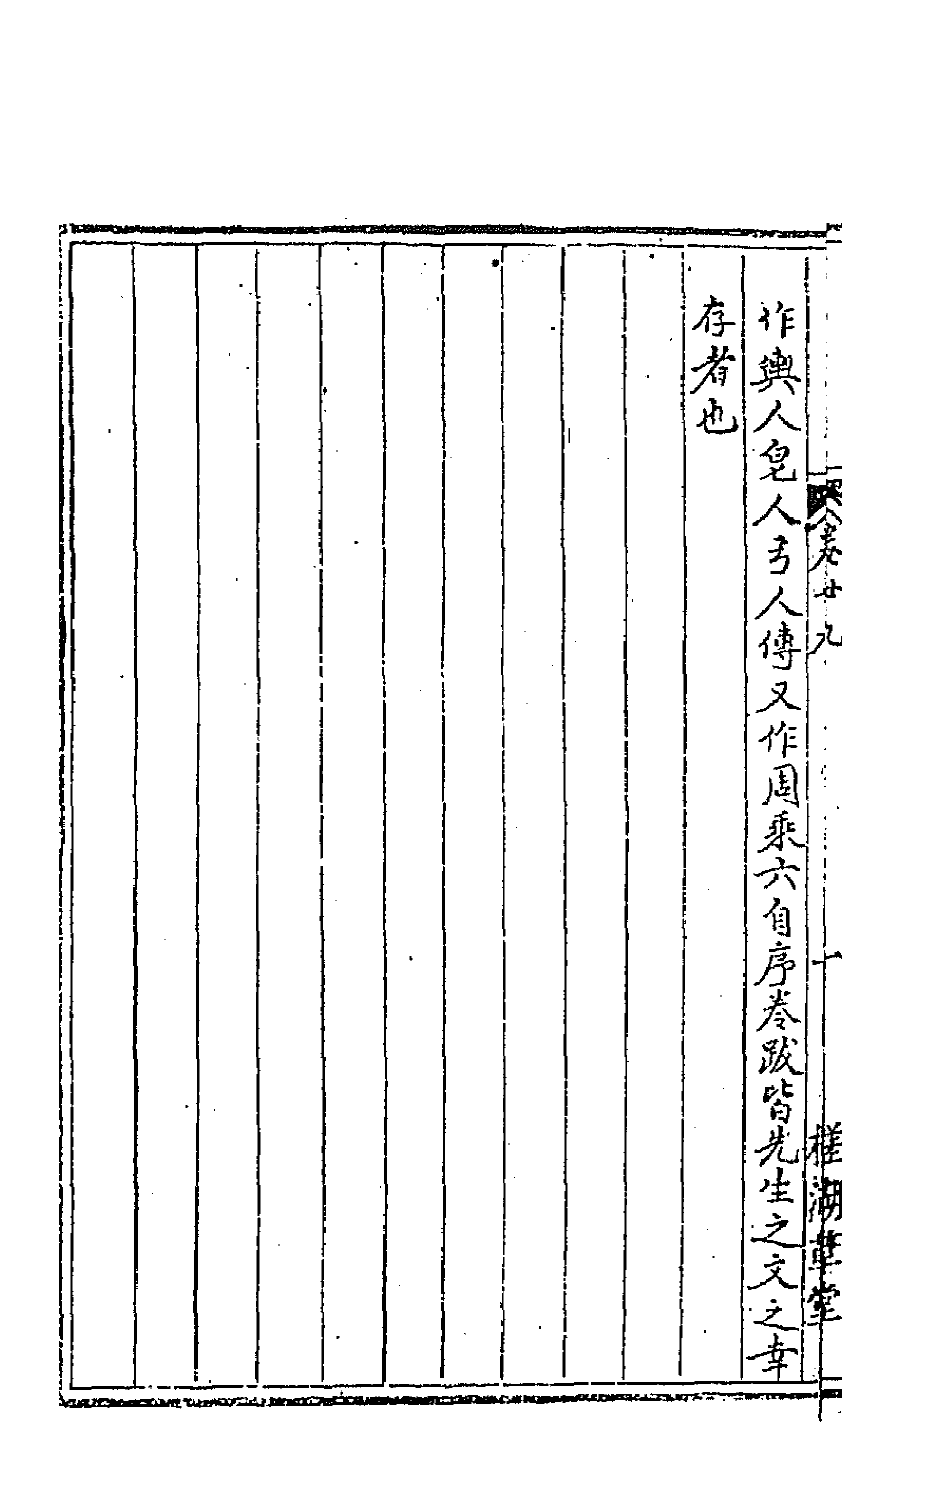 卷廿九
十
權湖草堂
作輿人皃人弓人傳又作周乘六自序卷跋皆先生之文之幸
存者也